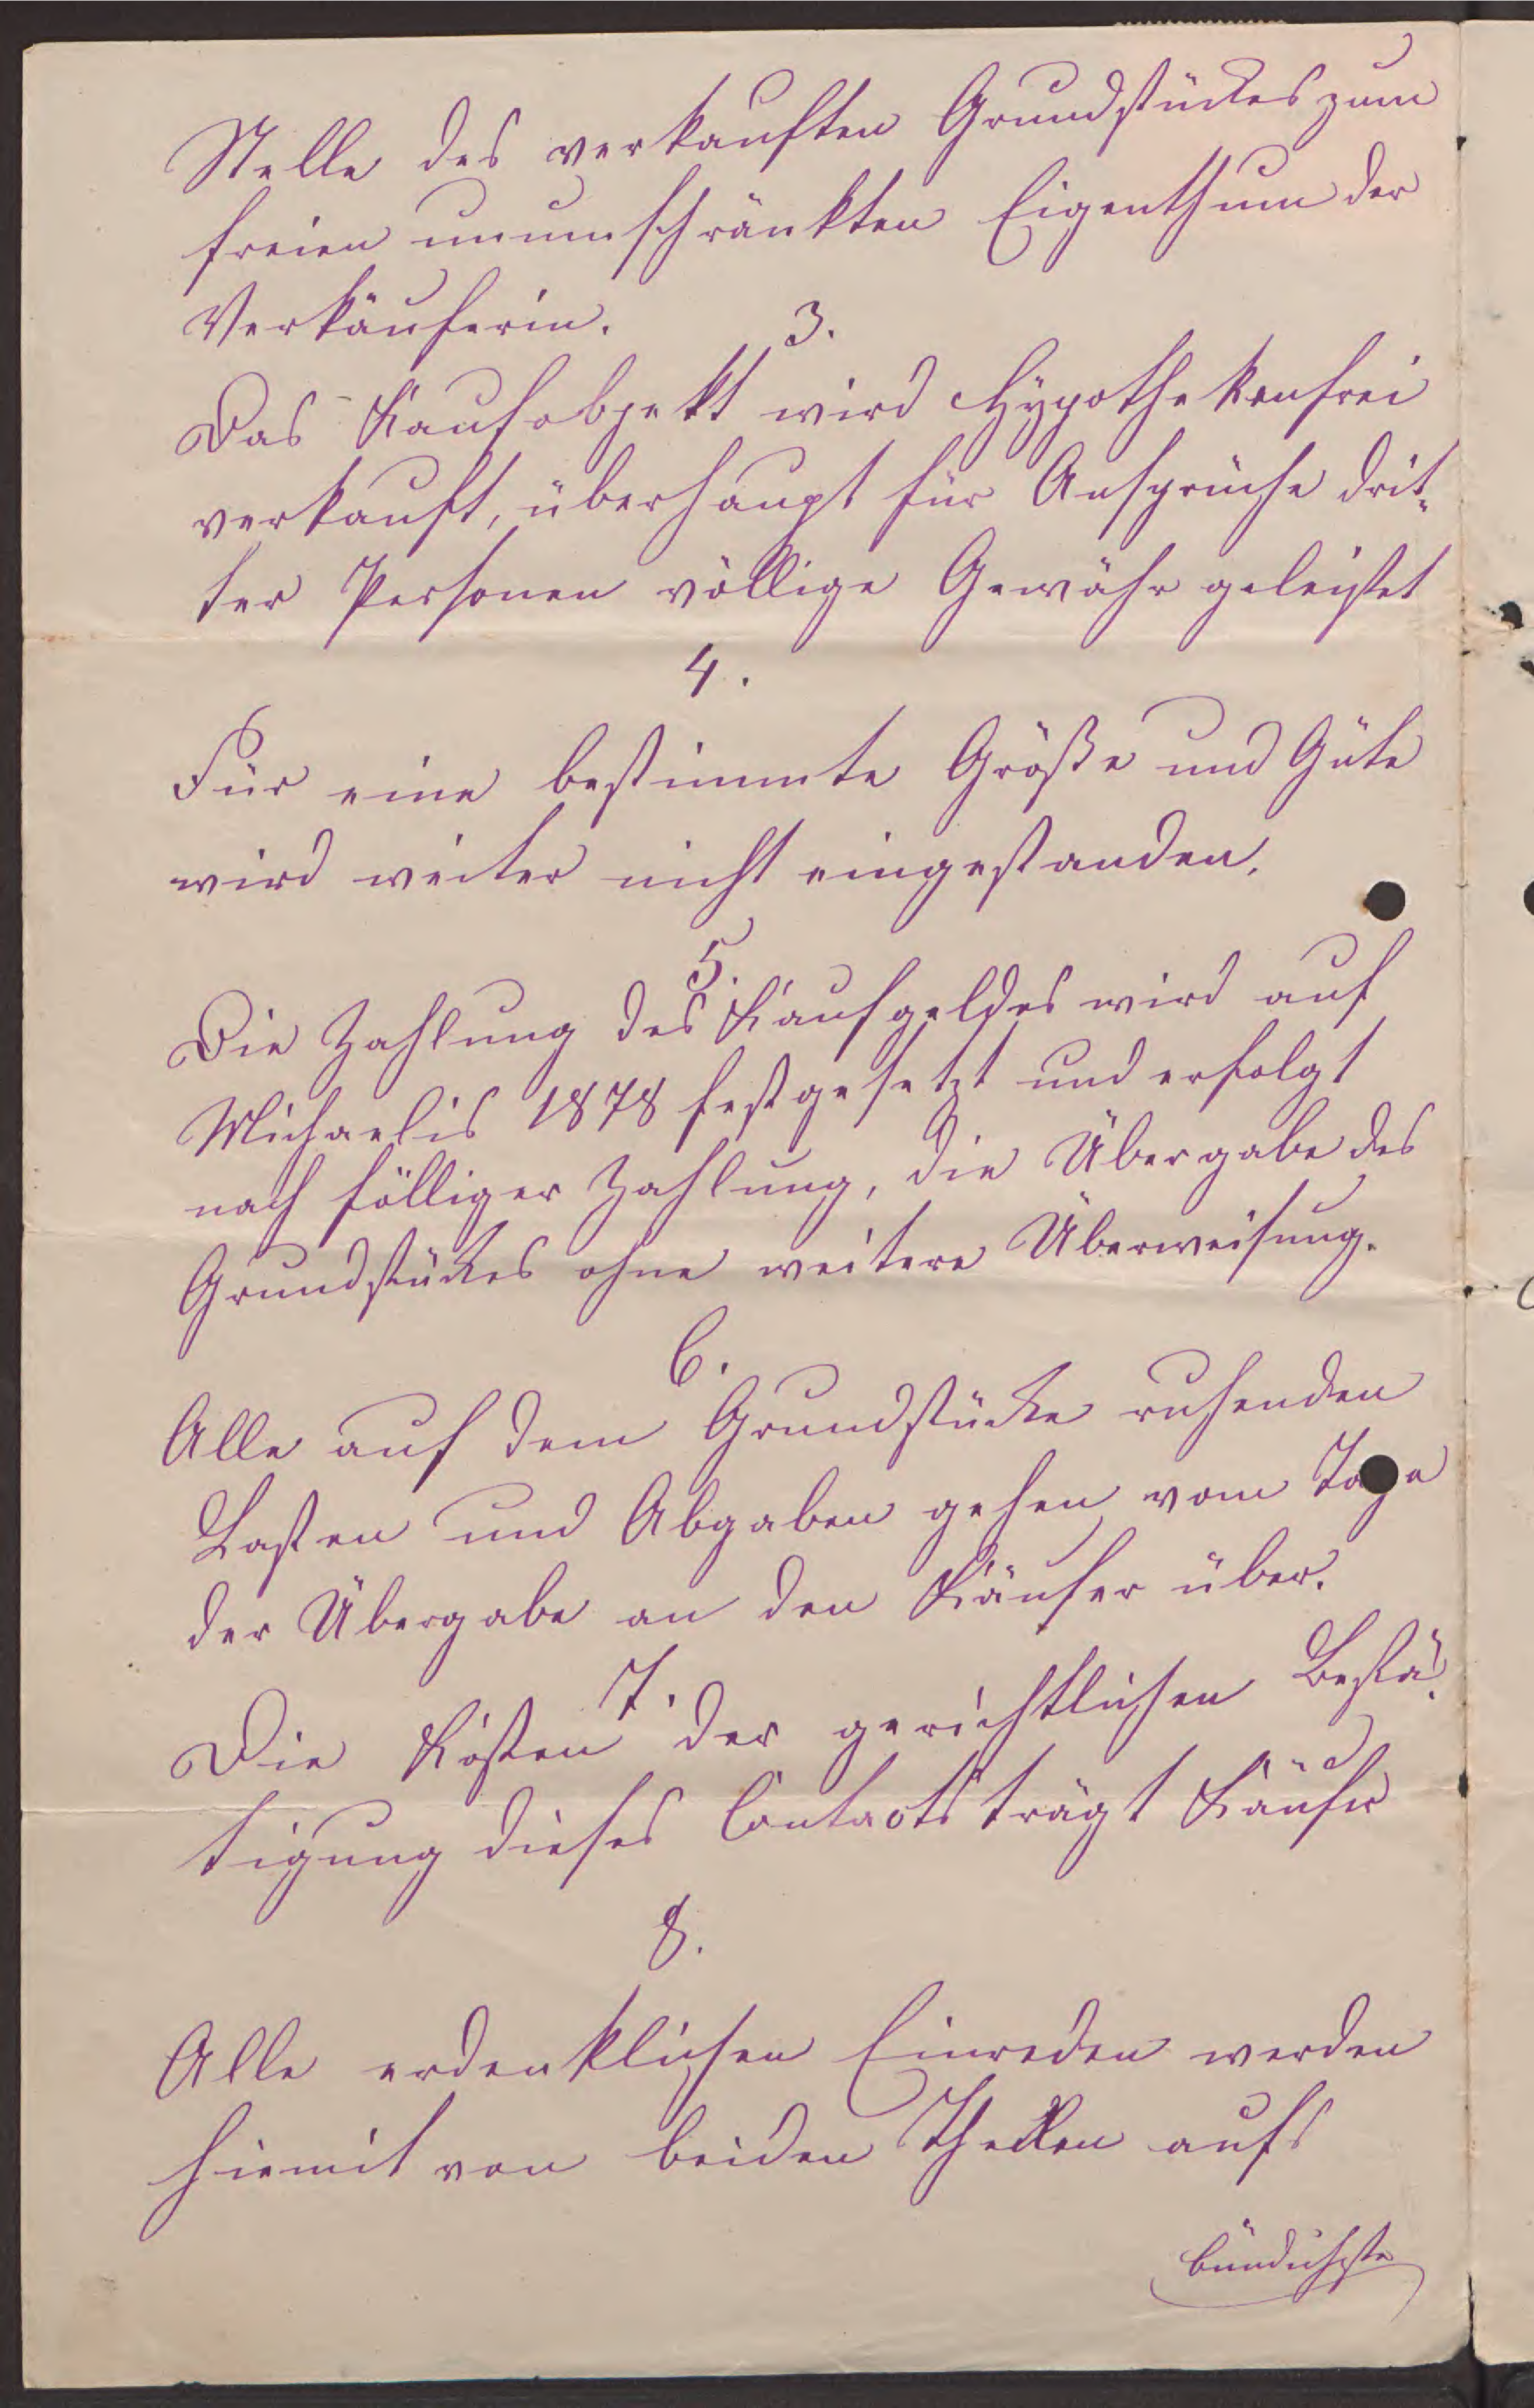 Stelle des verkauften Grundstückes zum
freien unumschränkten Eigenthum der
Verkäuferin.
3.
Das Kaufobjekt wird Hypothekenfrei
verkauft, überhaupt für Ansprüche drit-
ter Personen völlige Gewähr geleistet
4.
Für eine bestimmte Größe und Güte
wird weiter nicht eingestanden.
5.
Die Zahlung des Kaufgeldes wird auf
Michaelis 1878 festgesetzt und erfolgt
nach fölliger Zahlung, die Übergabe des
Grundstückes ohne weitere Überweisung.
6.
Alle auf dem Grundstücke ruhenden
Lasten und Abgaben gehen vom Tage
der Übergabe an den Käufer über.
7.
Die Kosten der gerichtlichen Bestä-
tigung dieses Contracts trägt Käufer
8.
Alle erdenklichen Einreden werden
hiemit von beiden Theilen aufs
bündichste